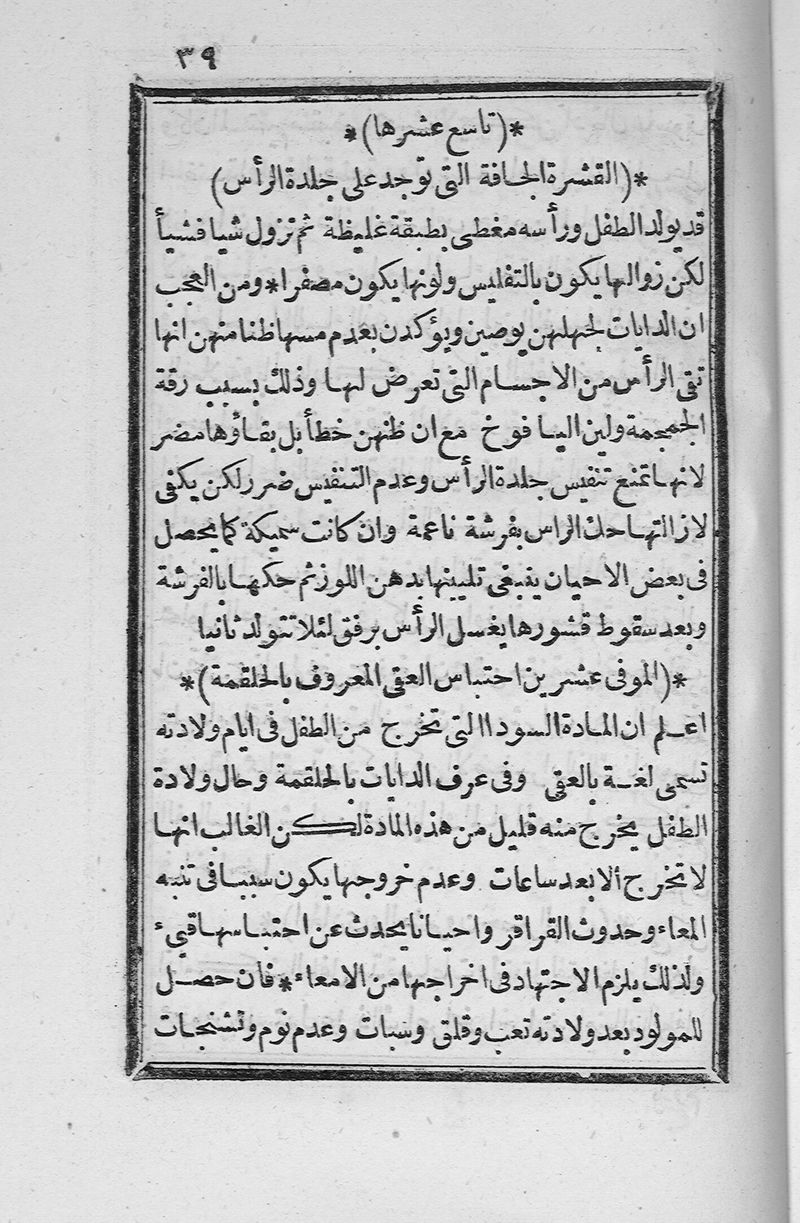 ٣٩
*(تاسع عشرها)*
*(القشرة الجافة التى توجد على جلدة الرأس)
قد يولد الطفل ورأسه مغطى بطبقة غليظة ثم تزول شيا فشيأ
لكن زوالها يكون بالتفليس ولونها يكون مصفرا * ومن العجب
ان الدايات لجهلهن يوصين ويؤكدن بعدم مسها ظنا منهن انها
تقى الرأس من الاجسام التى تعرض لها وذلك بسبب رقة
الجمجمة ولين اليافوخ مع ان ظنهن خطأ بل بقاؤها مضر
لانها تمنع تنفيس جلدة الرأس وعدم التنفيس ضرر لكن يكفى
لازالتها حك الراس بفرشة ناعمة وان كانت سميكة كما يحصل
فى بعض الاحيان ينبغى تليينها بدهن اللوز ثم حكها بالفرشة
وبعد سقوط قشورها يغسل الرأس برفق لئلا تتولد ثانيا
*(الموفى عشرين احتباس العقى المعروف بالحلقمة)*
اعلم ان المادة السودا التى تخرج من الطفل فى ايام ولادته
تسمى لغة بالعقى وفى عرف الدايات بالحلقمة وحال ولادة
الطفل يخرج منه قليل من هذه المادة لكن الغالب انها
لا تخرج ألا بعد ساعات وعدم خروجها يكون سببا فى تنبه
المعاء وحدوث القراقر واحيانا يحدث عن احتباسها قيء
ولذلك يلزم الاجتهاد فى اخراجها من الامعاء * فان حصل
للمولود بعد ولادته تعب وقلق وسبات وعدم نوم وتشنجات